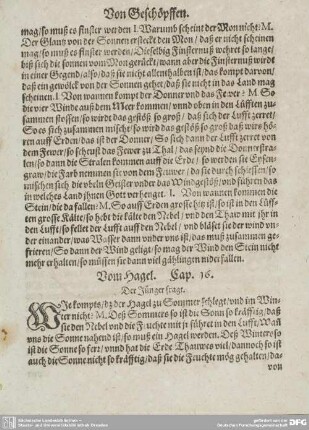 Von Geschöpffen.
mag/ so muß es finster werden I. Warumb scheint der Mon nicht: M.
Der Glantz von der Sonnen ersteckt den Mon/ daß er nicht scheinen
mag/ so muß es finster werden/ Dieselbig Finsternuß wehret so lange/
biß sich die sonnen vom Mon gerückt/ wann aber die Finsternuß wirdt
in einer Gegend/ also/ daß sie nicht allenthalben ist/ das kompt darvon/
daß ein gewölck von der Sonnen gehet/ daß sie nicht in das Land mag
scheinen. I. Von wannen kompt der Donner und das Fewer? M. So
die vier Winde auß dem Meer kommen/ vnnd oben in den Lüfften zu-
sammen stossen/ so wirdt das gestöß so groß/ daß sich der Lufft zerret/
So es sich zusammen mischt/ so wird das gestöß so groß daß wirs hö-
ren auff Erden/ das ist der Donner/ So sich dann der Lufft zerret von
dem Fewer/ so scheust das Fewer zu Thal/ das seynd die Donnerstra-
len/ so dann die Stralen kommen auff die Erde/ so werden sie Eysen-
graw/ die Farb nemmen sie von dem Feuwer/ da sie durch schiessen/ so
mischen sich die vbeln Geister vnder das Windgestöß/ vnd führen das
in welches Land ihnen Gott verhenget. I. Von wannen kommen die
Stein/ die da fallen: M. So auff Erden grosse hitz ist/ so ist in den Lüff-
ten grosse Kälte/ so hebt die kälte den Nebel/ vnd den Thaw mit ihr in
den Lufft/ so fellet der Lufft auff den Nebel/ vnd bläset sie der wind vn-
der einander/ was Wasser dann vnder vns ist/ das muß zusammen ge-
frieren/ So dann der Wind geligt/ so mag der Wind den Stein nicht
mehr erhalten/ so müssen sie dann viel gählingen nider fallen.
Vom Hagel. Cap. 16.
Der Jünger fragt.
WJe kompts/ dz der Hagel zu Sommer schlegt/ vnd im Win-
ter nicht: M. Deß Sommers so ist die Sonn so kräfftig/ daß
sie den Nebel vnd die Feuchte mit jr führet in den Lufft/ Wañ
vns die Sonne nahend ist/ so muß ein Hagel werden. Deß Winters so
ist die Sonne so fern/ vnnd hat die Erde Thauwes viel/ dannoch so ist
auch die Sonne nicht so kräfftig/ daß sie die Feuchte mög gehalten/ da-
von